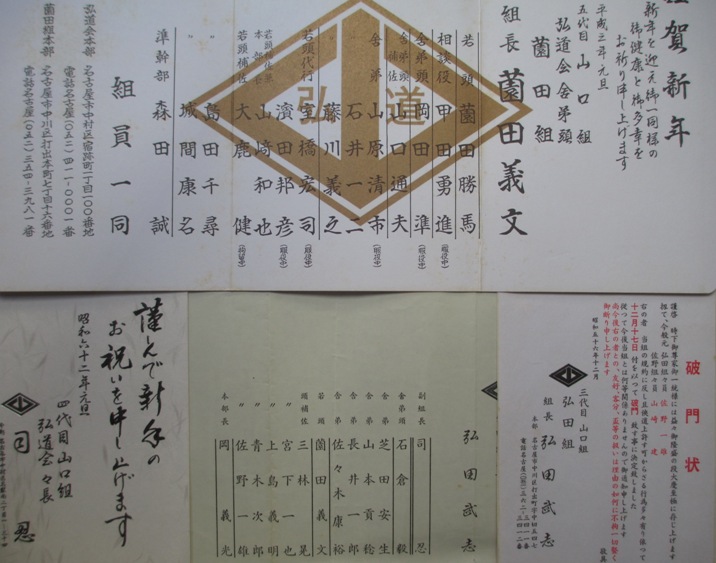 謹賀新年
新年を迎え御一同様の
御健康と御多幸を
お祈り申し上げます
平成三年元旦
五代目山口組
弘道会舎弟頭
薗田組
組長 薗田義文
若頭 薗田勝馬
相談役 甲田勇進
舎弟頭 岡田準 (服役中)
舎弟頭補佐 山口通夫
舎弟 山原清市 (服役中)
〃 石井一二
〃 藤川義之
若頭代行 室橋宏司 (服役中)
〃 濱田邦彦 (服役中)
山崎和也
若頭補佐 大鹿健 (拘留中)
〃 島田千尋
〃 城間康名
準幹部 森田誠
組員一同
弘道会本部
名古屋市中村区宿跡町一丁目一〇〇番地
電話名古屋(〇五二)四一一-〇〇〇一番
薗田組本部
名古屋市中川区打出本町七丁目十六番地
電話名古屋(〇五二)三五四-三九八一番
弘道
破門状
謹啓 時下御尊家御一統様には益々御隆盛の段大慶至極に存じ上げます
扨て、今般元 弘田組々員 佐野一雄
佐野組々員 山崎建
右の者 当組の規約に反し且侠道上許す可からざる行為多々有り依つて
十二月十七日付を以つて破門致す事に決定致しました
従つて今後当組とは何等関係ありませんので御通知申し上げます
尚今後右の者との、友好、客分、盃等の扱いは理由の如何に不拘一切堅く
御断り申し上げます
敬具
昭和五十六年十二月
三代目山口組
弘田組
組長 弘田武志
弘田武志
副組長 司忍
舎弟頭 石倉毅
舎弟 芝田安生
舎弟 山本貢稔
舎弟 長井一郎
舎弟 佐々木康裕
若頭 薗田義文
頭補佐 三林晃
〃 宮下一也
〃 上島義明
〃 青木次郎
〃 佐野一雄
本部長 岡義光
謹んで新年の
お祝いを申し上げます
昭和六十二年元旦
四代目山口組
弘道会々長
司忍